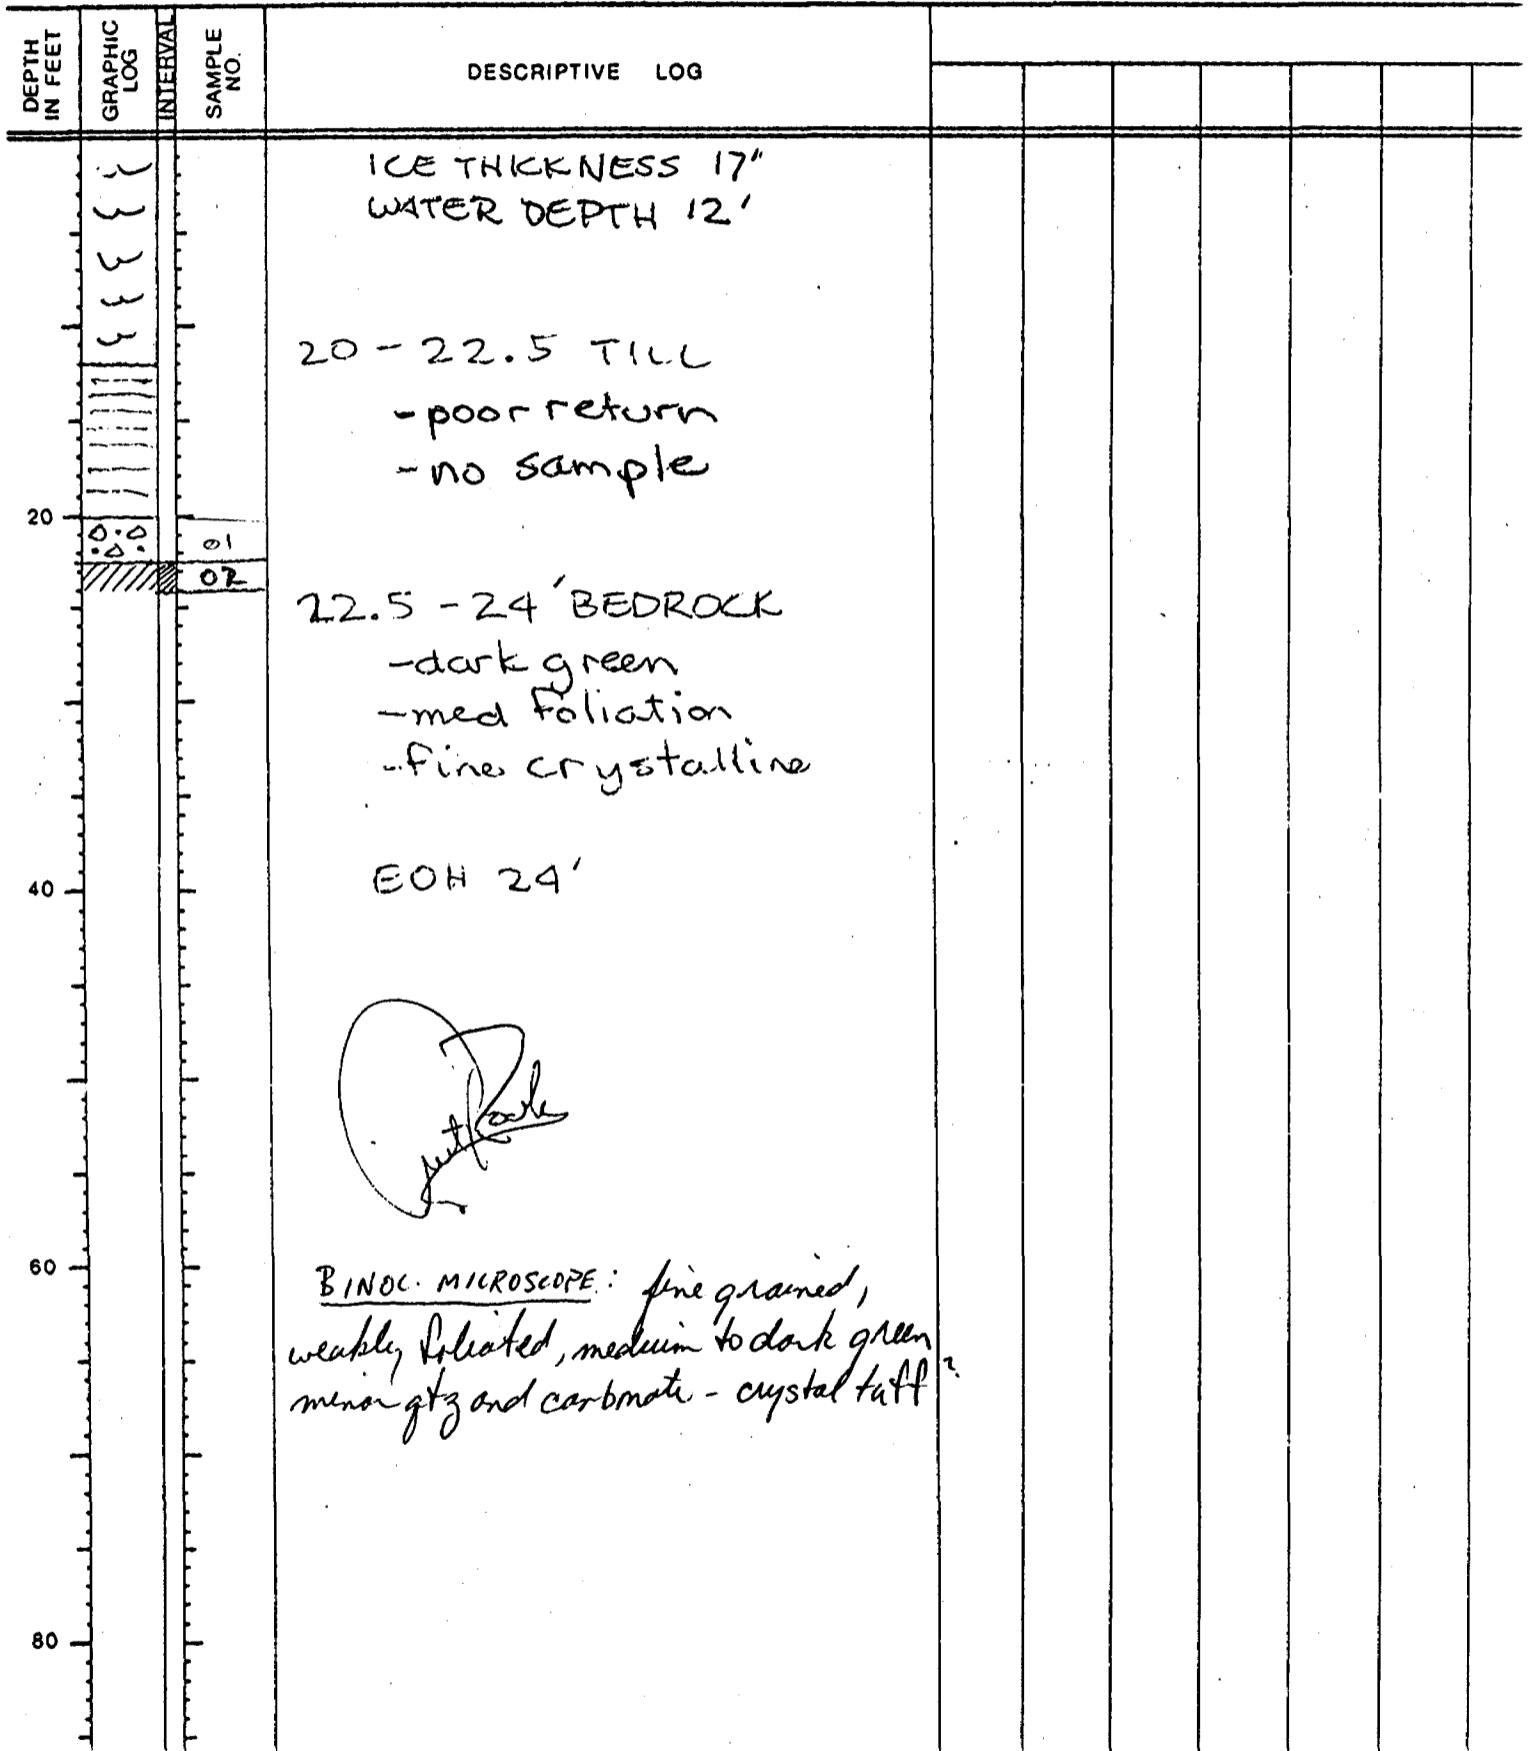 DEPTH IN FEET
GRAPHIC LOG
INTERVAL
SAMPLE NO.
DESCRIPTIVE LOG
ICE THICKNESS 17"
WATER DEPTH 12'
20 - 22.5 TILL
- poor return
- no sample
20
01
02
22.5 - 24' BEDROCK
- dark green
- med foliation
- fine crystalline
40
EOH 24'
60
BINOC. MICROSCOPE: fine grained,
weakly foliated, medium to dark green
minor qtz and carbonate - crystal tuff?
80